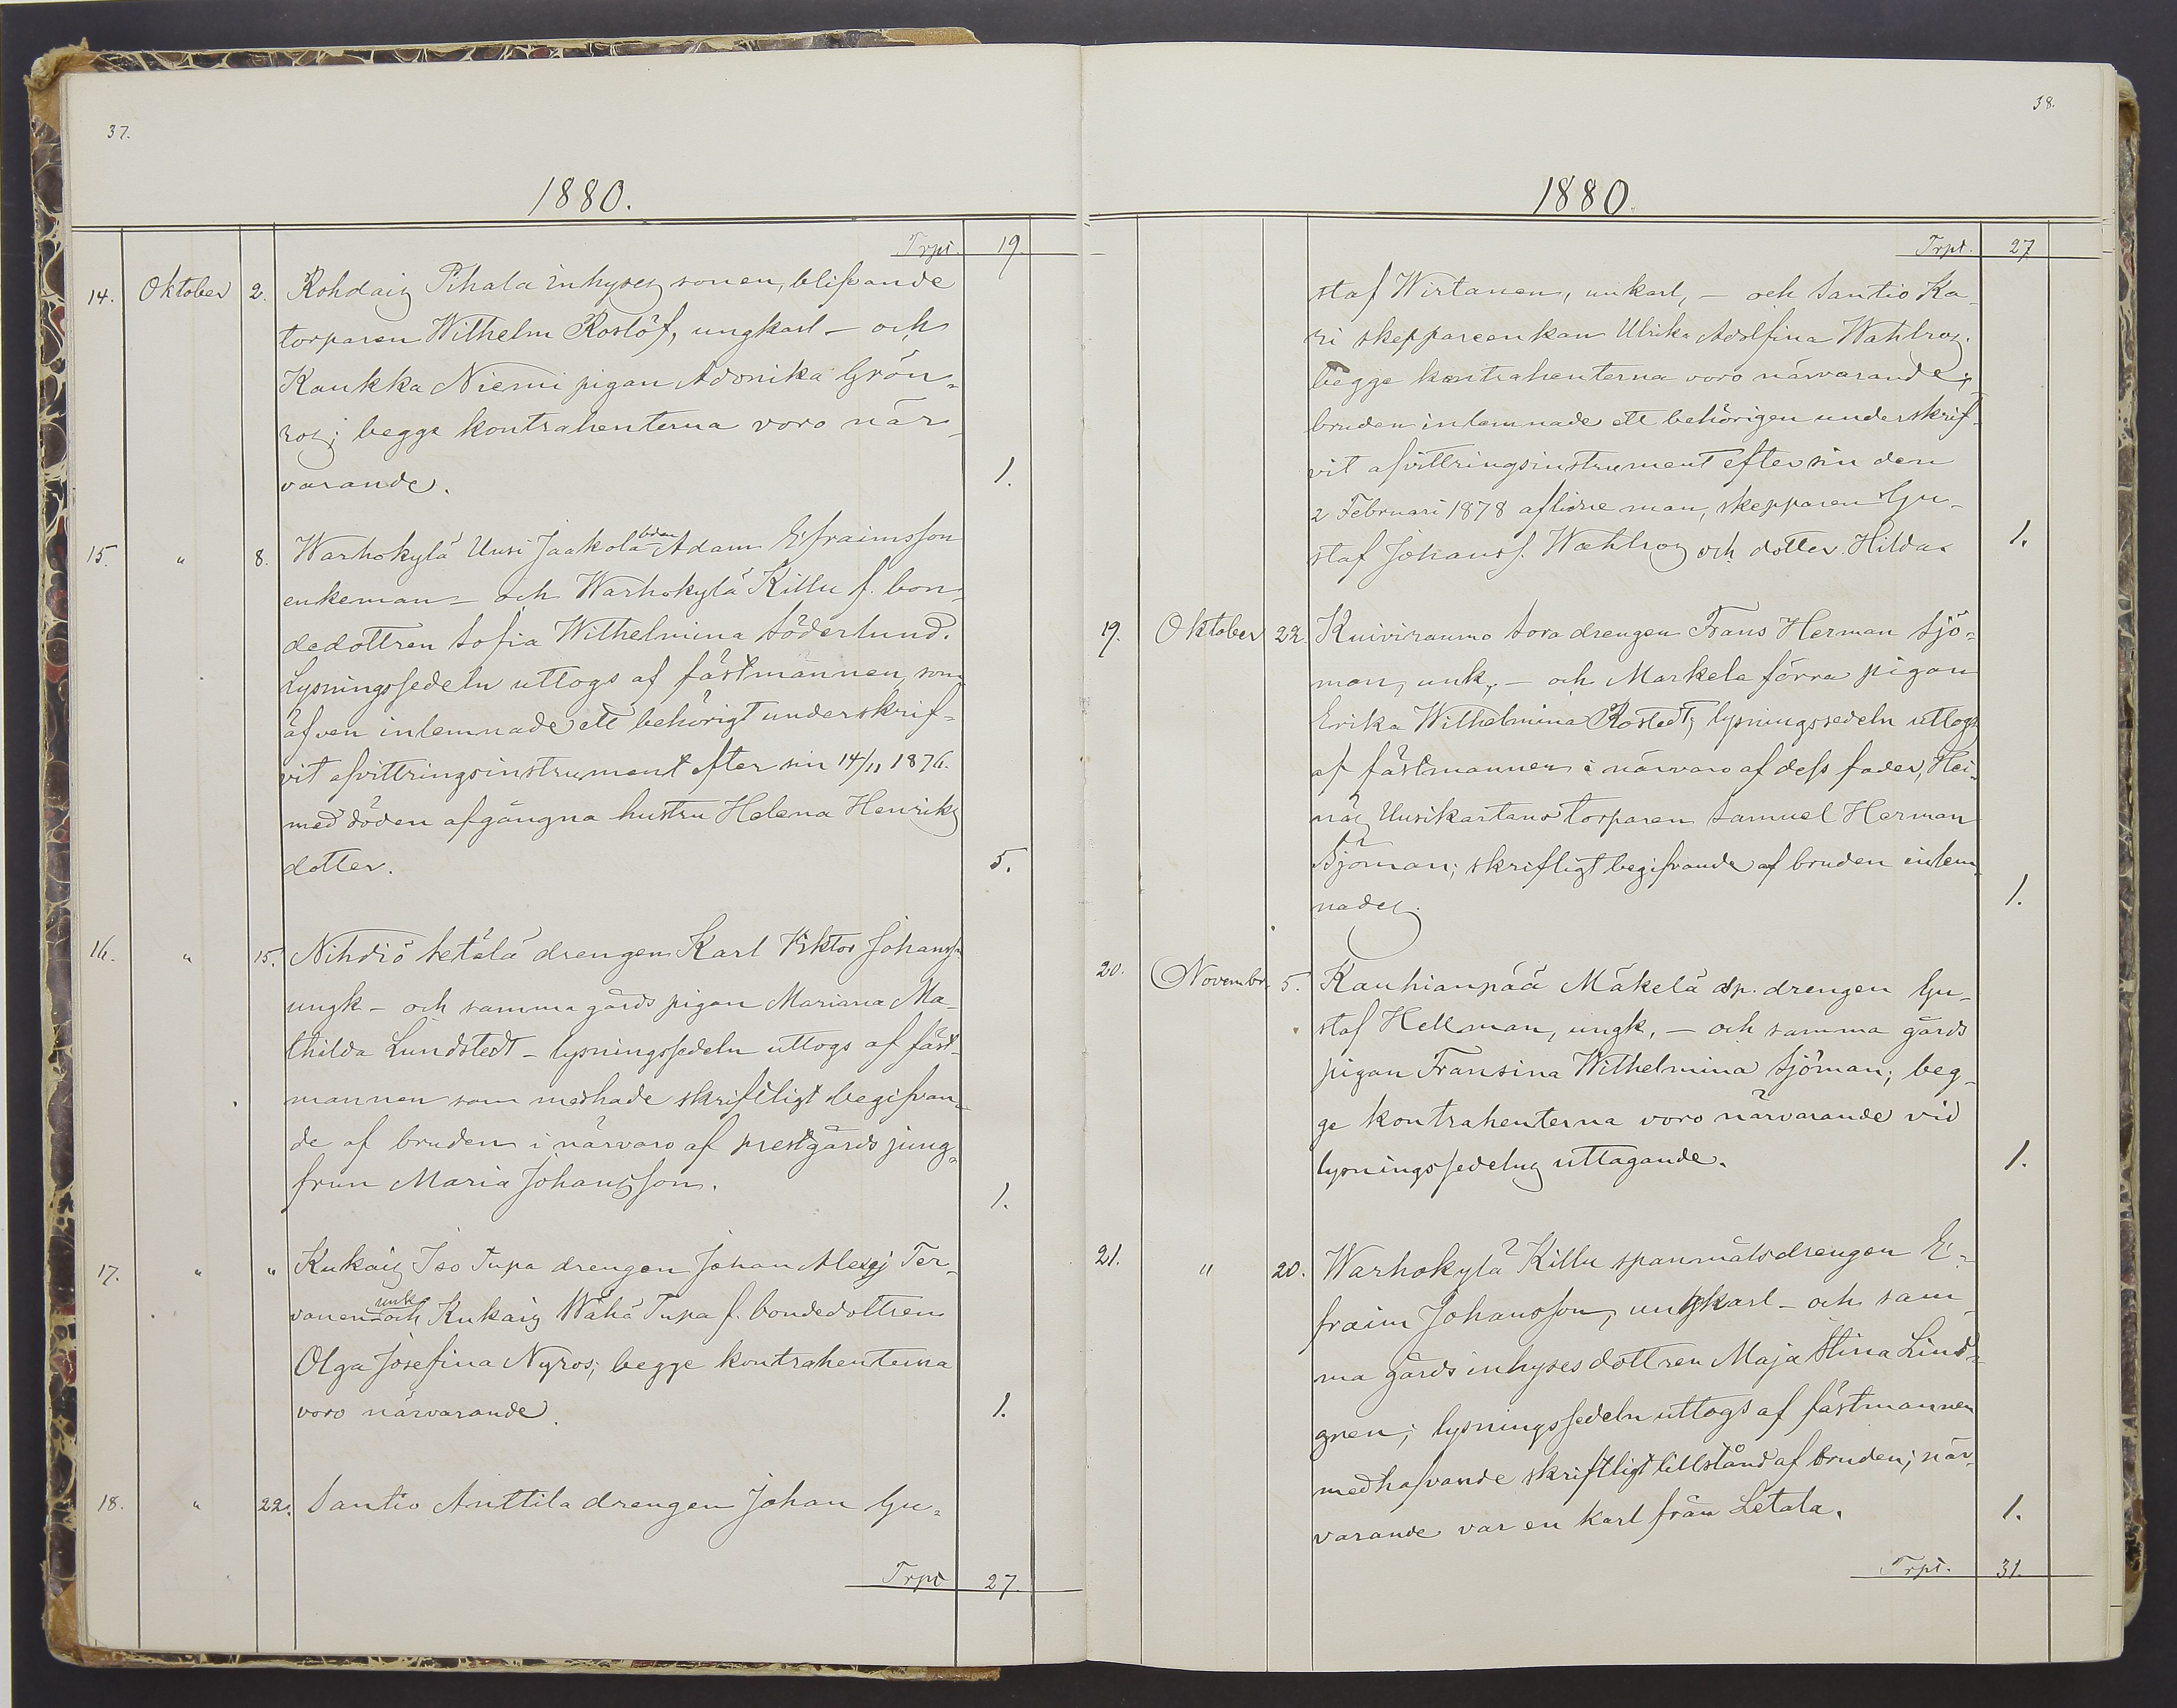 37.
1880.
Trpt. 19.
14. Oktober 2. Rohdais Pihala inhyses sonen, blifvande
torparen Wilhelm Roslöf, ungkarl - och
Kaukka Niemi pigan Adonika Grön-
ros; begge kontrahenterna voro när-
varande. 1.
15. " 8. Warhokylä Uusi Jaakola bdn Adam Efraimsson
enkeman - och Warhokylä Killu f. bon-
dedottren Sofia Wilhelmina Söderlund.
Lysningssedeln uttogs af fästmannen, som
äfven inlemnade ett behörigt underskrif-
vit afvittringsinstrument efter sin 14/11 1876.
med döden afgångna hustru Helena Henriks
dotter. 5.
16. " 15. Nihdiö Setälä drengen Karl Viktor Johanss.
ungk - och samma gårds pigan Mariana Ma-
thilda Lundstedt - lysningssedeln uttogs af fäst-
mannen som medhade skriftligt begifvan-
de af bruden i närvaro af prestgårds jung-
frun Maria Johansson. 1.
17. " " Kukais Iso Tupa drengen Johan Alexej Ter-
vanen unk - och Kukais Wähä Tupa f. bondedottren
Olga Josefina Nyros; begge kontrahenterna
voro närvarande. 1.
18. " 22. Santio Anttila drengen Johan Gu-
Trpt 27.
38.
1880.
Trpt. 27
staf Wirtanen, unkarl, - och Santio Ka-
ri skeppareenkan Ulrika Adolfina Wahlros.
begge kontrahenterna voro närvarande;
bruden inlemnade ett behörigen underskrif-
vit afvittringsinstrument efter sin den
2 Februari 1878 aflidne man, skepparen Gu-
staf Johanss. Wahlros och dotter Hilda. 1.
19. Oktober 22. Kuivirauma Sora drengen Frans Herman Sjö-
man, unk, - och Markela förra pigan
Erika Wilhelmina Rostedt; lysningssedeln uttogs
af fästmannen i närvaro af dess fader, Hei-
näs Uusikartano torparen Samuel Herman
Sjöman; skriftligt begifvande af bruden inlem-
nades. 1.
20. Novembr. 5. Kauhianpää Mäkelä sp. drengen Gu-
staf Hellman, ungk, - och samma gårds
pigan Fransina Wilhelmina Sjöman; beg-
ge kontrahenterna voro närvarande vid
lysningssedelns uttagande. 1.
21. " 20. Warhokylä Killu spanmålsdrengen E-
fraim Johansson, ungkarl - och sam-
ma gårds inhysesdottren Maja Stina Lind-
gren; lysningssedeln uttogs af fästmannen
medhafvande skriftligt tillstånd af bruden; när-
varande var en karl från Letala. 1.
Trpt. 31.